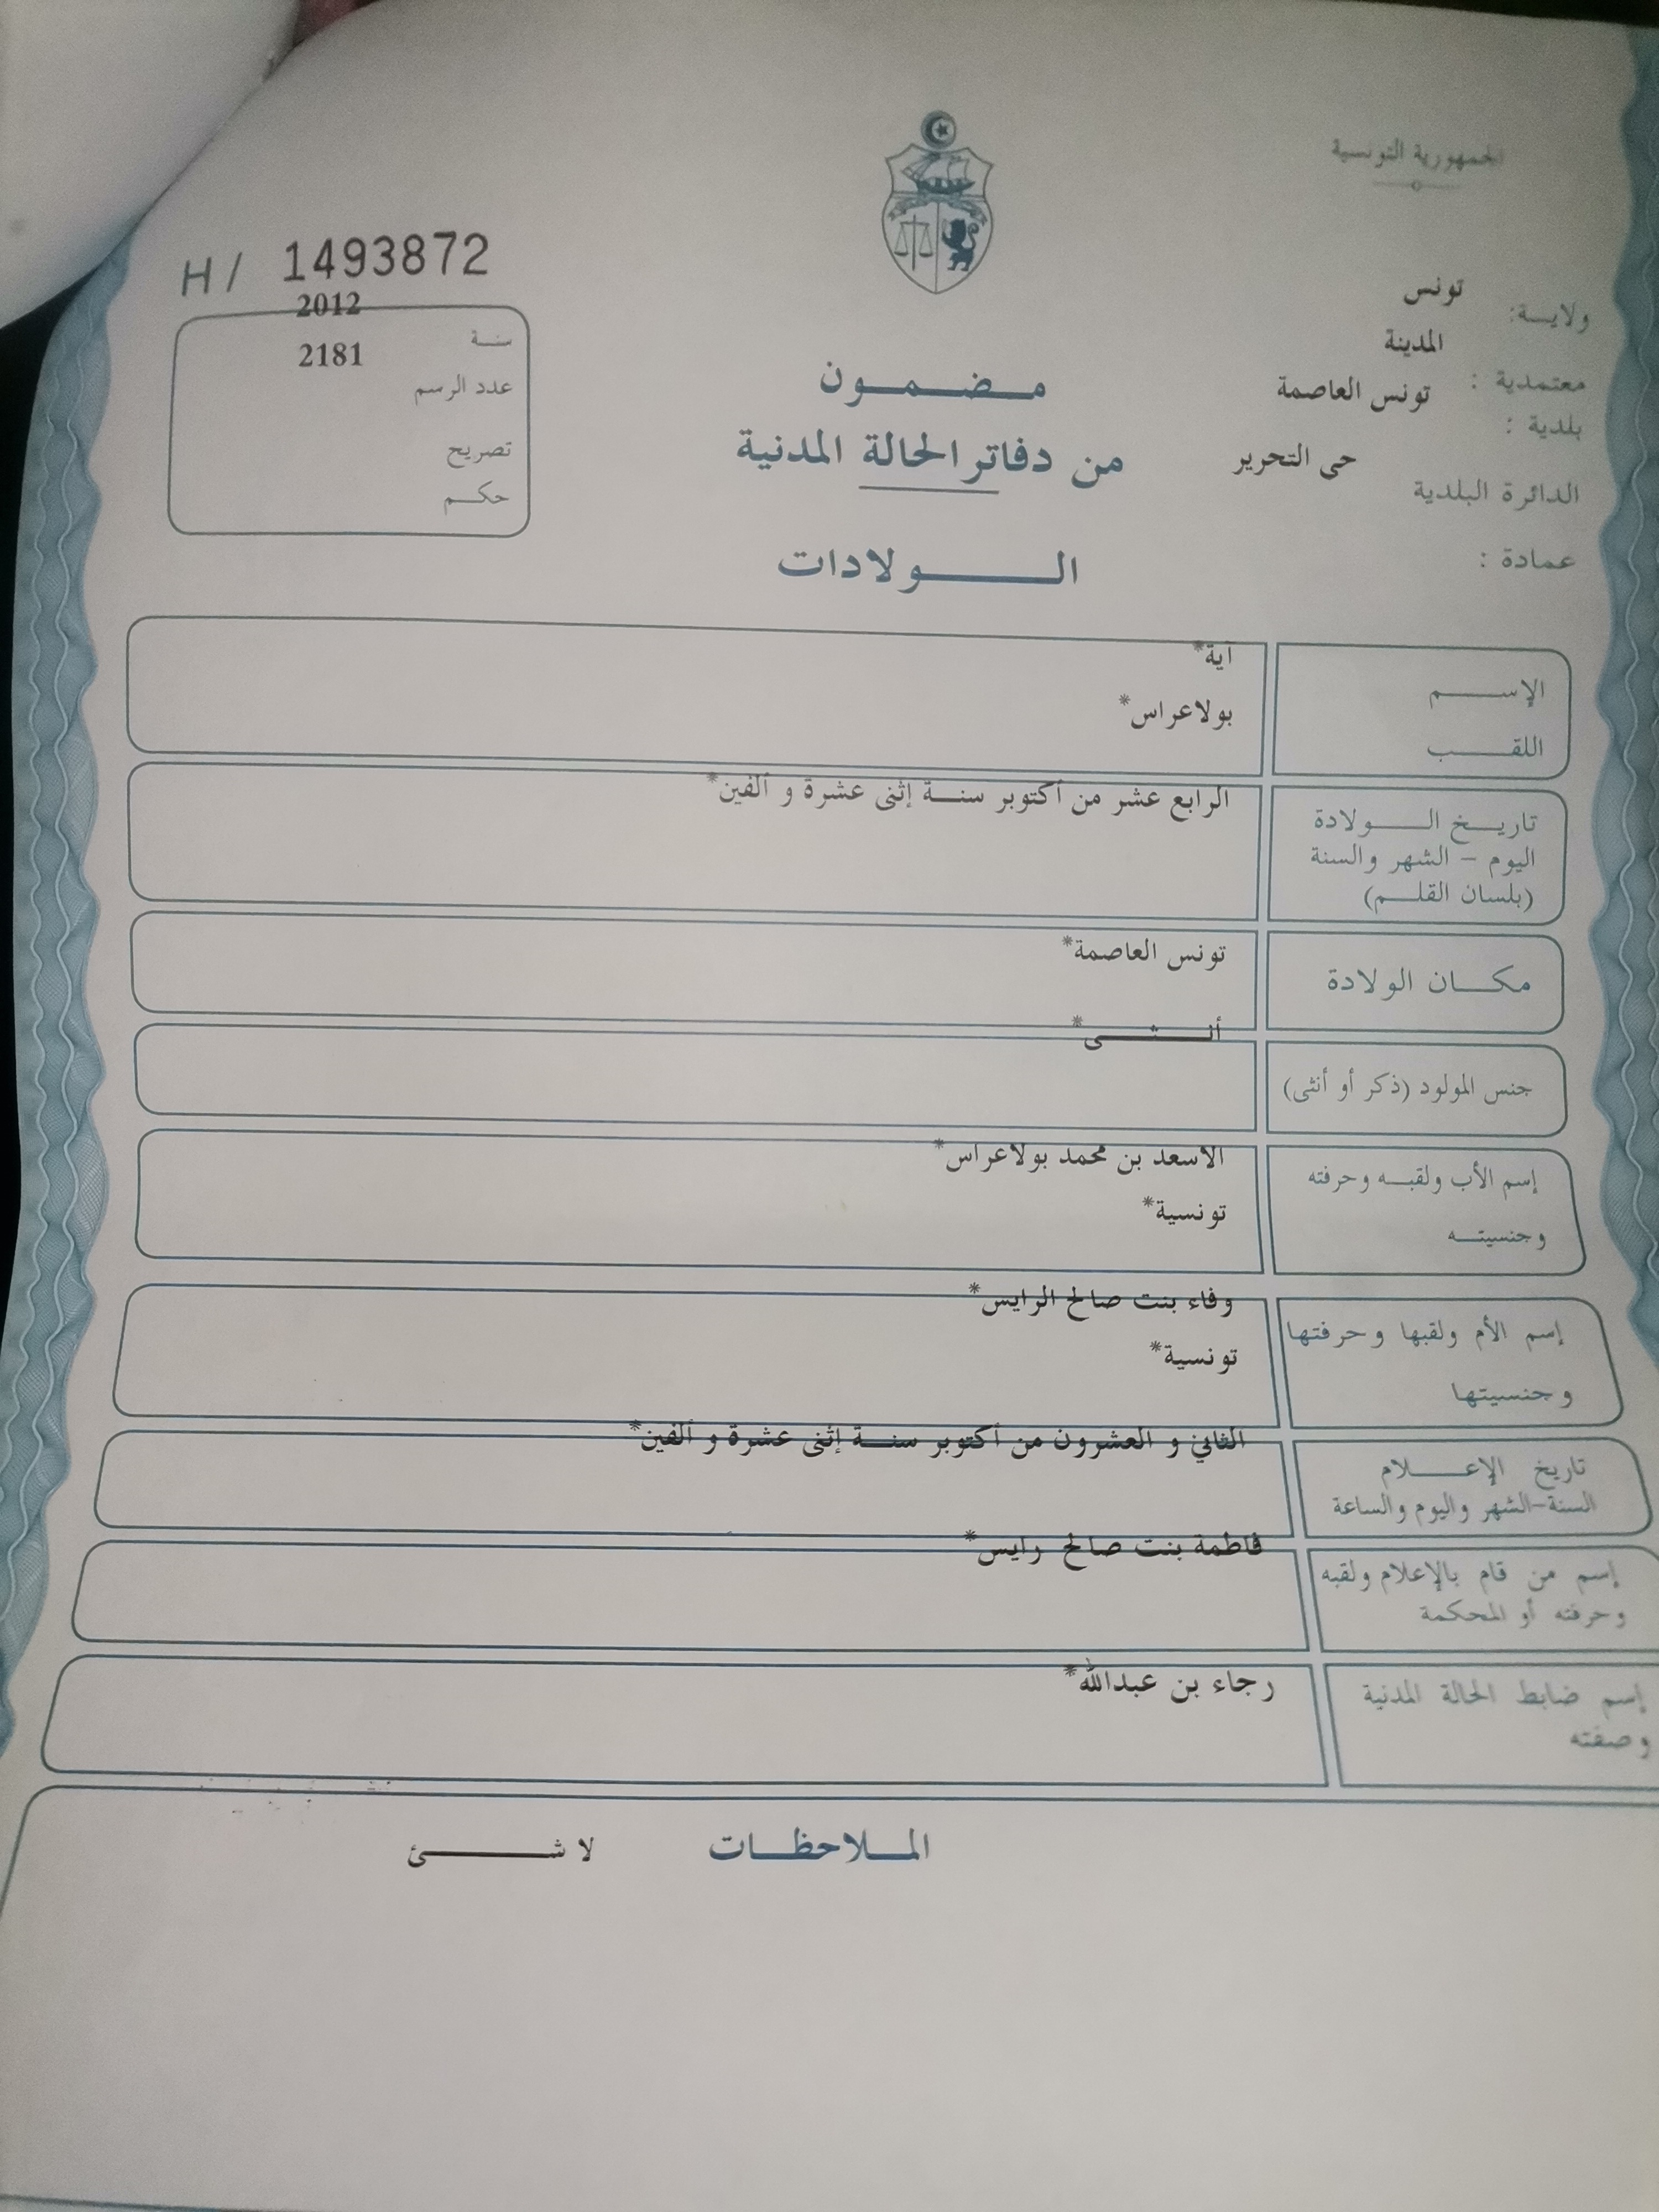 الجمهورية التونسية
H/ 1493872
ولايـــة: تونس
معتمدية : المدينة
بلدية : تونس العاصمة
الدائرة البلدية حى التحرير
عمادة :
سنــة 2012
عدد الرسم 2181
تصريح
حكــم
مــضــمــون
من دفاتر الحالة المدنية
الـــولادات
الإســـم آية*
اللقـــب بولاعراس*
تاريــخ الـــولادة الرابع عشر من أكتوبر سنــة إثنى عشرة و ألفين*
اليوم – الشهر والسنة
(بلسان القلــم)
مكـــان الولادة تونس العاصمة*
جنس المولود (ذكر أو أنثى) أنـــثـــى*
إسم الأب ولقبــه وحرفته الاسعد بن محمد بولاعراس*
وجنسيتــه تونسية*
إسم الأم ولقبها وحرفتها وفاء بنت صالح الرايس*
وجنسيتها تونسية*
تاريخ الإعـــلام الثاني و العشرون من أكتوبر سنــة إثنى عشرة و ألفين*
السنة-الشهر واليوم والساعة
إسم من قام بالإعلام ولقبه فاطمة بنت صالح رايس*
وحرفته أو المحكمة
إسم ضابط الحالة المدنية رجاء بن عبدالله*
وصفته
المــلاحظــات لا شـــئ